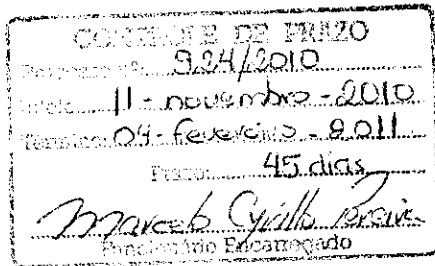 CONTROLE DE PRAZO
Processo nº 924/2010
Início 11 - novembro - 2010
Término: 04 - fevereiro - 2011
Prazo: 45 dias
Marcelo Cyrillo Pereira
Funcionário Encarregado